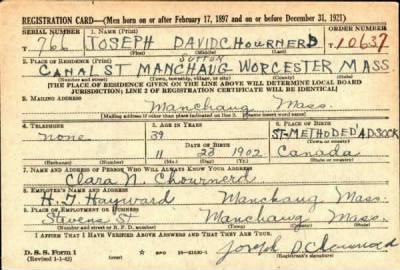 REGISTRATION CARD—(Men born on or after February 17, 1897 and on or before December 31, 1921)
SERIAL NUMBER 1. NAME (Print) ORDER NUMBER
T 766 JOSEPH DAVID CHOURNERD T 10637
(First) (Middle) (Last)
2. PLACE OF RESIDENCE (Print)
SUTTON
CANAL ST MANCHAUG WORCESTER MASS
(Number and street) (Town, township, village, or city) (County) (State)
[THE PLACE OF RESIDENCE GIVEN ON THE LINE ABOVE WILL DETERMINE LOCAL BOARD
JURISDICTION; LINE 2 OF REGISTRATION CERTIFICATE WILL BE IDENTICAL]
3. MAILING ADDRESS
Manchaug Mass.
[Mailing address if other than place indicated on line 2. If same insert word same]
4. TELEPHONE 5. AGE IN YEARS 6. PLACE OF BIRTH
none 39 ST-METHODE D'ADSOCK
DATE OF BIRTH (Town or county)
11 23 1902 Canada
(Exchange) (Number) (Mo.) (Day) (Yr.) (State or country)
7. NAME AND ADDRESS OF PERSON WHO WILL ALWAYS KNOW YOUR ADDRESS
Clara N. Chournerd
8. EMPLOYER'S NAME AND ADDRESS
H. T. Hayward Manchaug Mass.
9. PLACE OF EMPLOYMENT OR BUSINESS
Stevens St Manchaug Mass.
(Number and street or R. F. D. number) (Town) (County) (State)
I AFFIRM THAT I HAVE VERIFIED ABOVE ANSWERS AND THAT THEY ARE TRUE.
D. S. S. Form 1
(Revised 1-1-42) (over) GPO 16—21630-1 Joseph D Chournerd
(Registrant's signature)